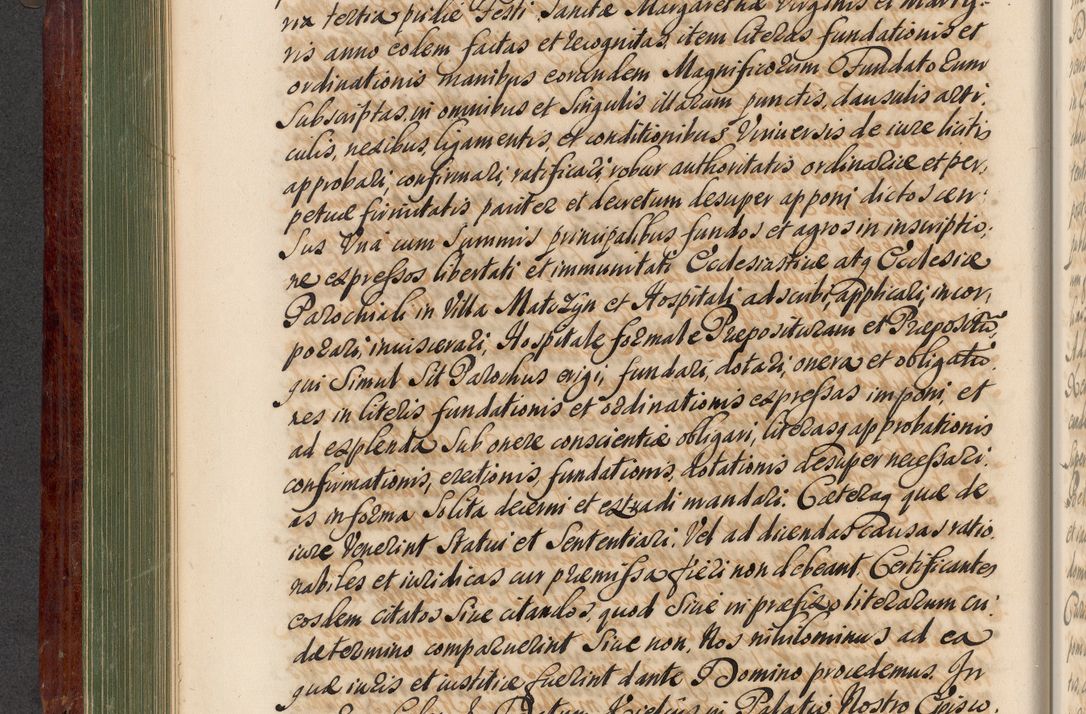 ria tertia pridie Festi Sanctæ Margarethæ Virginis et Marty-
ris anno eodem factas et recognitas, item literas fundationis et
ordinationis manibus eorundem Magnificorum Fundatorum
Subscriptas, in omnibus et Singulis illarum punctis, clausulis arti,
culis, nexibus, ligamentis, et conditionibus Universis de iure licitis
approbari, confirmari, ratificari, robur authoritatis ordinariæ et per,
petuæ firmitatis pariter et decretum desuper apponi dictos cen-
Sus Una cum Summis principalibus fundos et agros in inscriptio,
ne expressos libertati et immunitati Ecclesiasticæ atq Ecclesiæ
Parochiali in Villa Matozyn et Hospitali adscribi, applicari, incor,
porari, inviscerari, Hospitale formale Præposituram et Præpositū
qui Simul Sit Parochus erigi, fundari, dotari, onera et obligatio,
nes in literis fundationis et ordinationis expressas imponi, et
ad explenda Sub onere conscientiæ obligari, literasq approbationis
confirmationis, erectionis, fundationis, dotationis desuper necessari,
as in forma Solita decerni et extradi mandari. Cæteraq quæ de
iure Venerint Statui et Sententiari. Vel ad dicendas causas ratio,
nabiles et iuridicas cur præmissa fieri non debeant. Certificantes
eosdem citatos Sive citandos, quod Sive in præfixo literarum cu-
dæ termino comparuerint Sive non, Nos nihilominus ad ea
quæ iuris et iustitiæ fuerint dante Domino procedemus. In
Datum Kielciis in Palatio Nostro Episco,